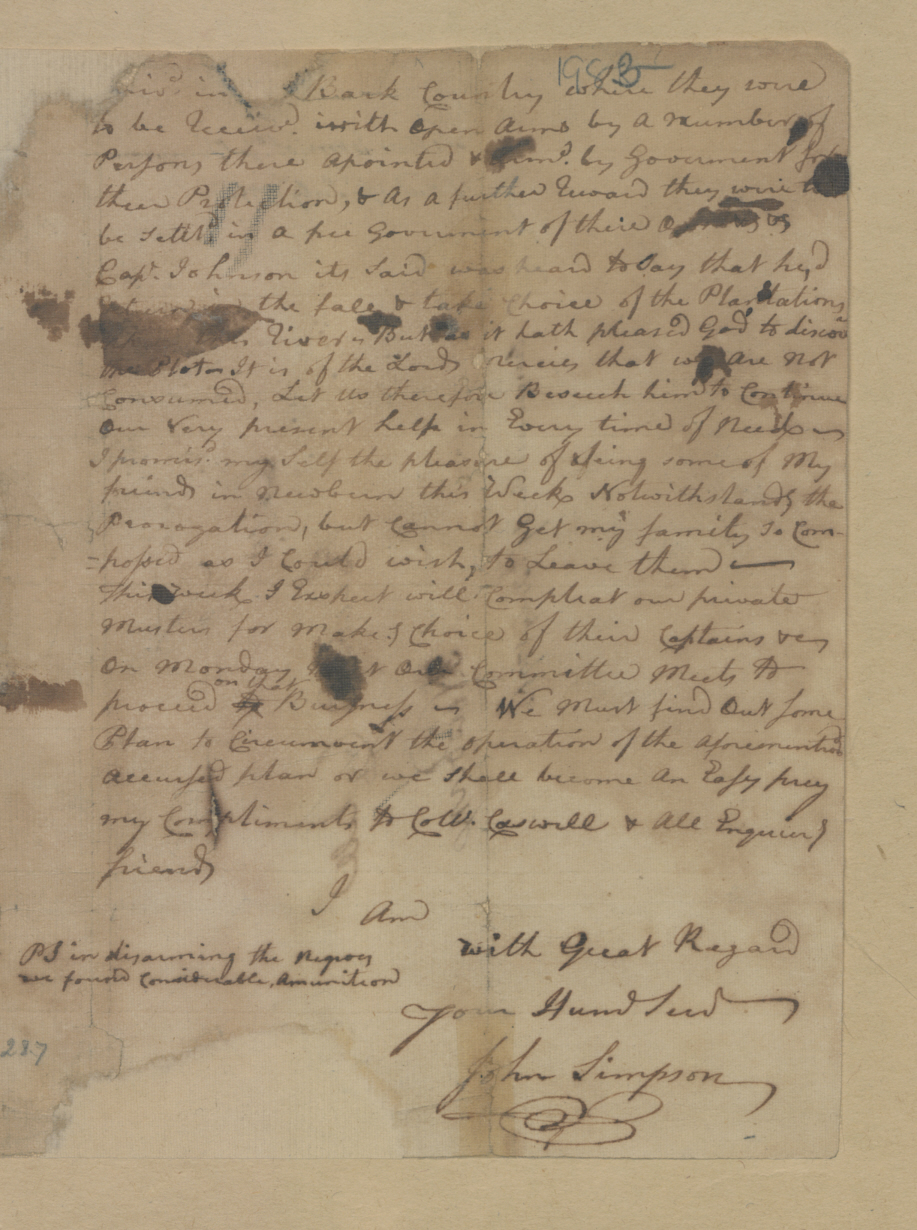 1983
in Back Country where they were
to be Receiv'd with open Arms by a number of
Persons there apointed & by Goverment for
their Protection, & As a further Reward they were to
be settl'd in a free Goverment of there
Cap.t Johnson its Said was heard to Say that he,d
the fale & take Choice of the Plantations
this River. But as it hath pleased God to discov
the Plot It is of the Lords mercies that we are not
Consumed, Let us therefore Beseech him to Continue
our very present help in Every time of Need
I promis'd my Self the pleasure of seing some of My
friends in Newbern this Week, Notwithstandg the
Proragation, but Cannot Get my family So Com-
=posed as I Could wish, to Leave them
This week I Expect will Compleat our private
Musters for Makeg Choice of their Captains &c
On Monday next our Committee Meets to
proceed on that Business We Must find Out Some
Plan to Circumvent the operation of the aforemention'd
accursed plan or we shall become an Easy prey
my Compliments to Coll. Caswell & All Enquirg
friends
I Am
with Great Regard
your Humb Serv
John Simpson
PS in disarming the Negroes
we found Considerable, Amunition
287